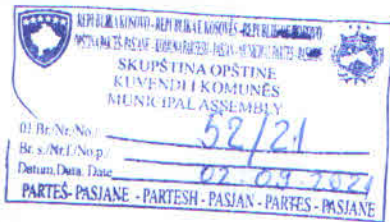 REPUBLIKA KOSOVO - REPUBLIKA E KOSOVËS - REPUBLIC OF KOSOVO
OPŠTINA PARTEŠ-PASJANE - KOMUNA PARTESH-PASJAN - MUNICIPAL PARTES-PASJANE
SKUPŠTINA OPŠTINE
KUVENDI I KOMUNËS
MUNICIPAL ASSEMBLY
01 Br./Nr./No./ 52/21
Br. s./Nr.f./No p./
Datum,Data, Date 02.09.2021
PARTEŠ- PASJANE - PARTESH - PASJAN - PARTES - PASJANE